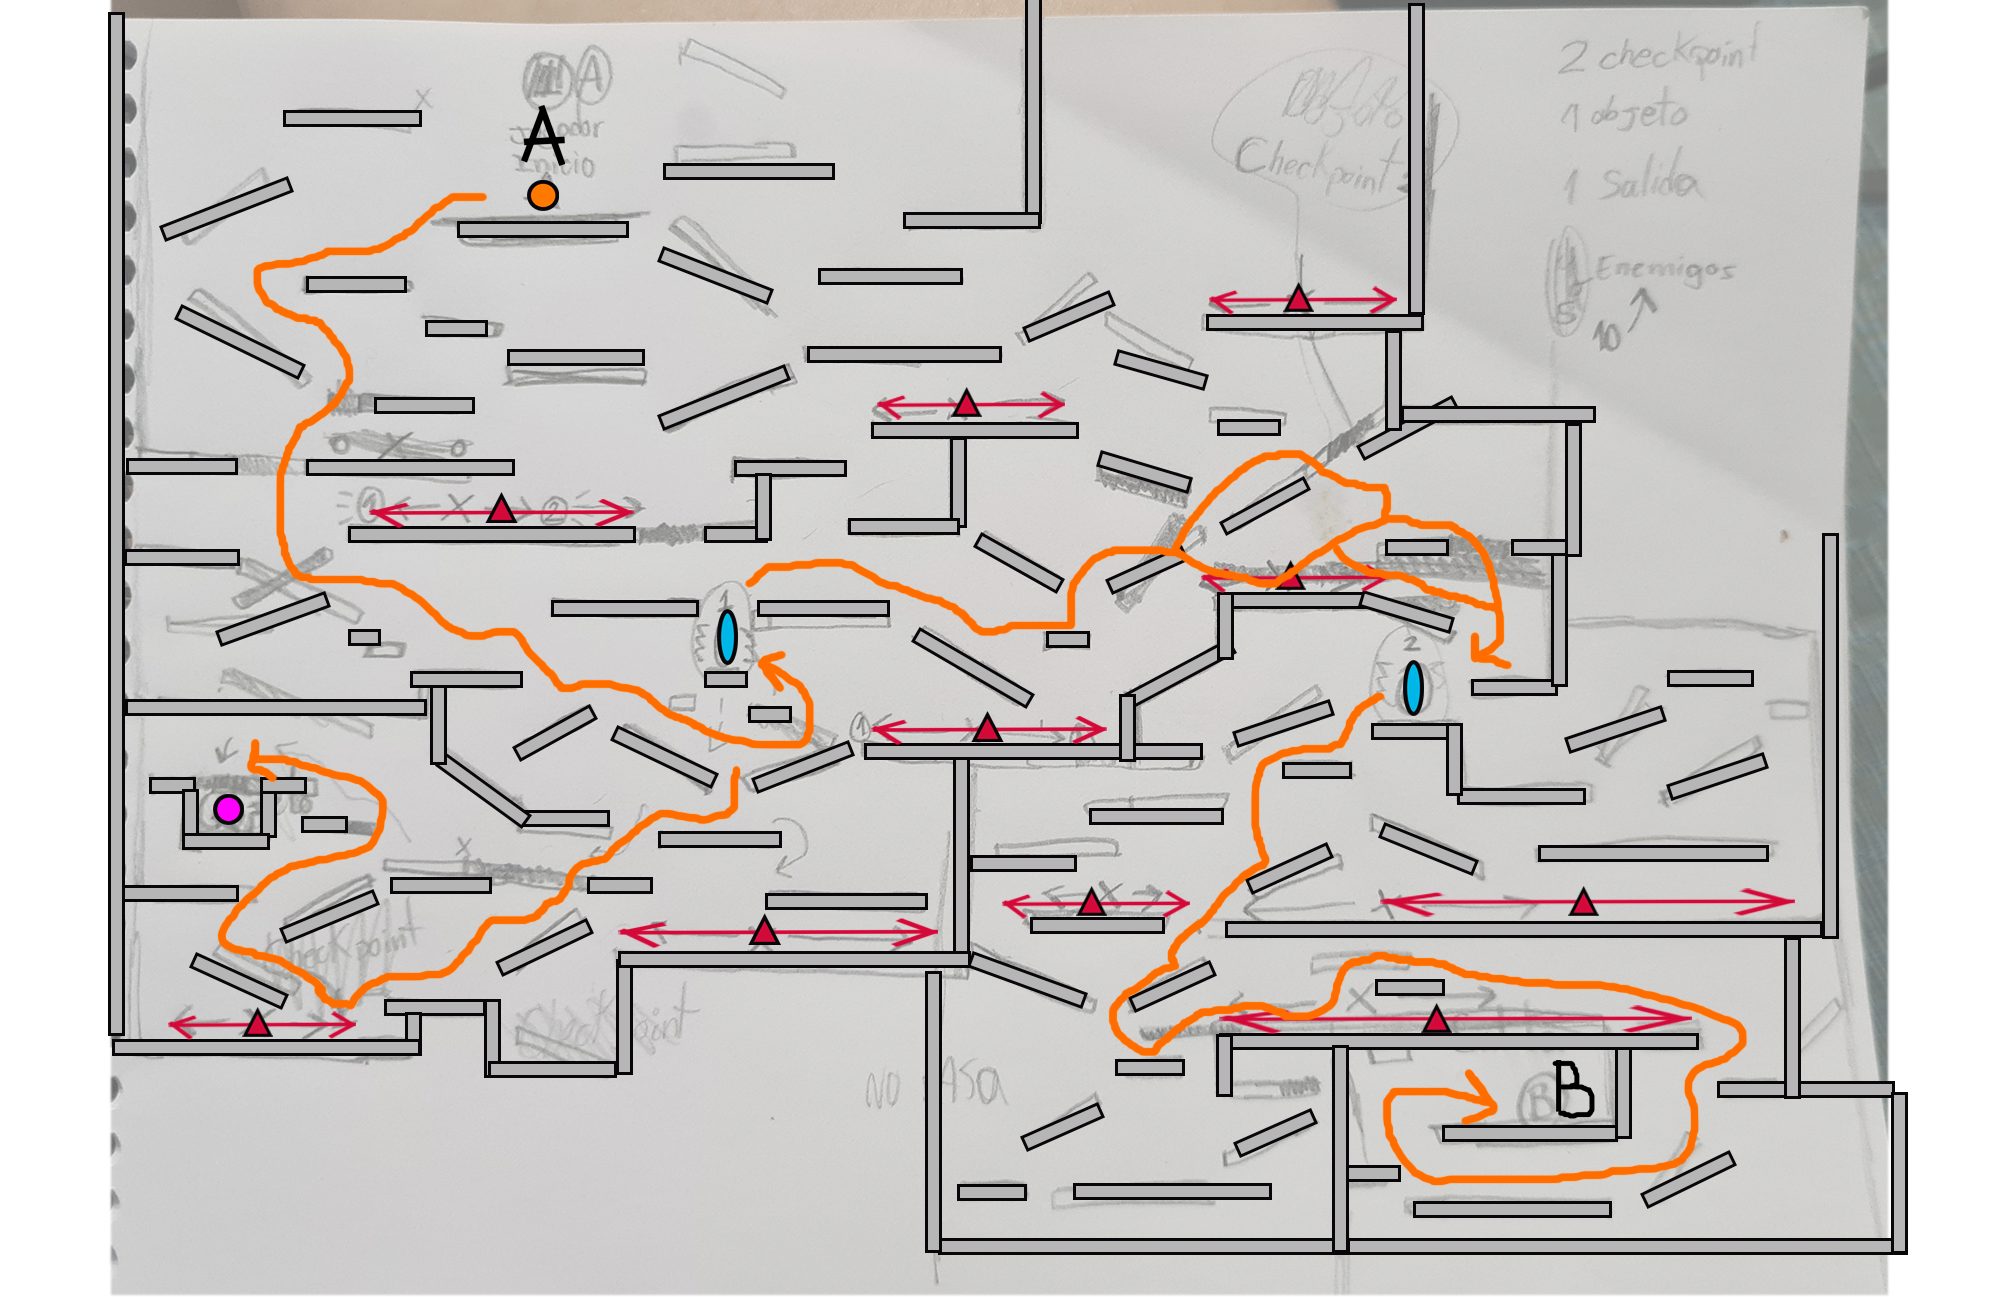 A
A
Jugador
Inicio
Checkpoint 2
2 checkpoint
1 objeto
1 Salida
Enemigos
5
10
1
2
1
2
1
checkpoint
Checkpoint
NO PASA
B
B